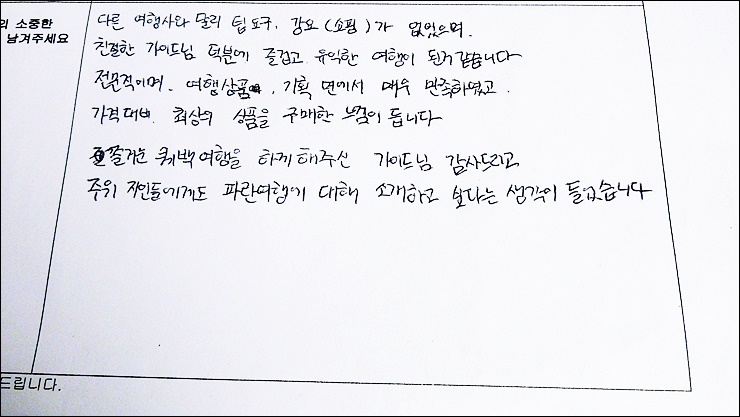 의 소중한
남겨주세요
다른 여행사와 달리 팁 요구, 강요 (쇼핑)가 없었으며.
친절한 가이드님 덕분에 즐겁고 유익한 여행이 된거 같습니다
전문적이며. 여행상품, 기획 면에서 매우 만족하였고.
가격대비 최상의 상품을 구매한 느낌이 듭니다
즐거운 퀘백여행을 하게 해주신 가이드님 감사드리고
주위 지인들에게도 파란여행에 대해 소개하고 싶다는 생각이 들었습니다
드립니다.